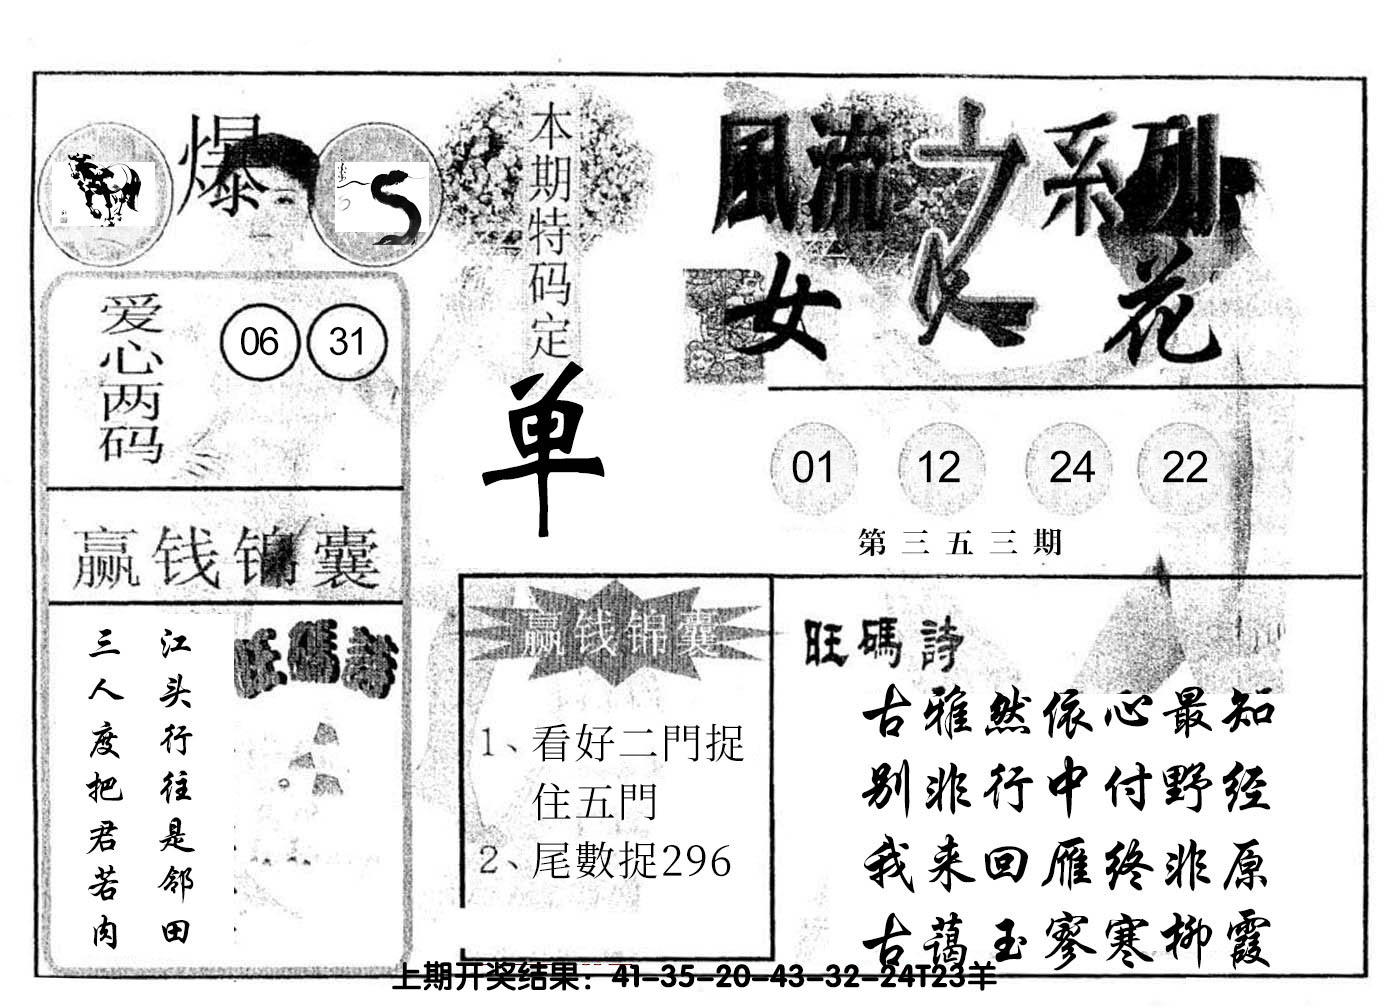 爆
本期特码定
单
風流之系列
女人花
爱心两码
06 31
赢钱锦囊
江头行往是邻田
三人度把君若肉
旺碼詩
01 12 24 22
第三五三期
赢钱锦囊
1、看好二門捉
住五門
2、尾數捉296
旺碼詩
古雅然依心最知
别非行中付野经
我来回雁终非原
古蔼玉寥寒柳霞
上期开奖结果：41-35-20-43-32-24T23羊